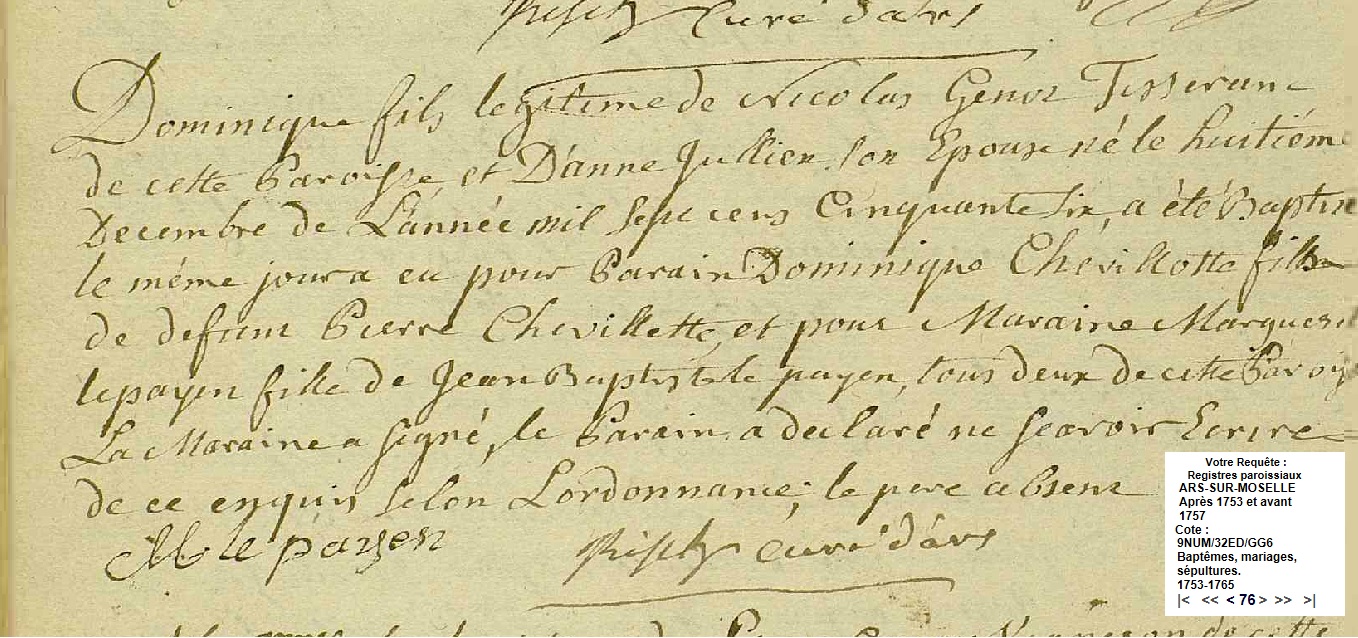 curé d'ars
Dominique fils legitime de Nicolas Genot Tisseran
de cette Paroisse, et D'anne Jullien son Epouse né le huitiém
Decembre de L'année mil sept cens Cinquante six, a été Baptise
le méme jour a eu pour Parain Dominique Chevillotte fils
de defunt Pierre Chevillette, et pour Maraine Marguerit
lepayen fille de Jean Baptiste le payen, tous deux de cette Paroiss
La Maraine a signé, le Parain a declaré ne sçavoir Ecrire
de ce enquis selon Lordonnance; le pere absent
M le payen curé d'ars
de cette
Votre Requête :
Registres paroissiaux
ARS-SUR-MOSELLE
Après 1753 et avant
1757
Cote :
9NUM/32ED/GG6
Baptêmes, mariages,
sépultures.
1753-1765
|< << < 76 > >> >|